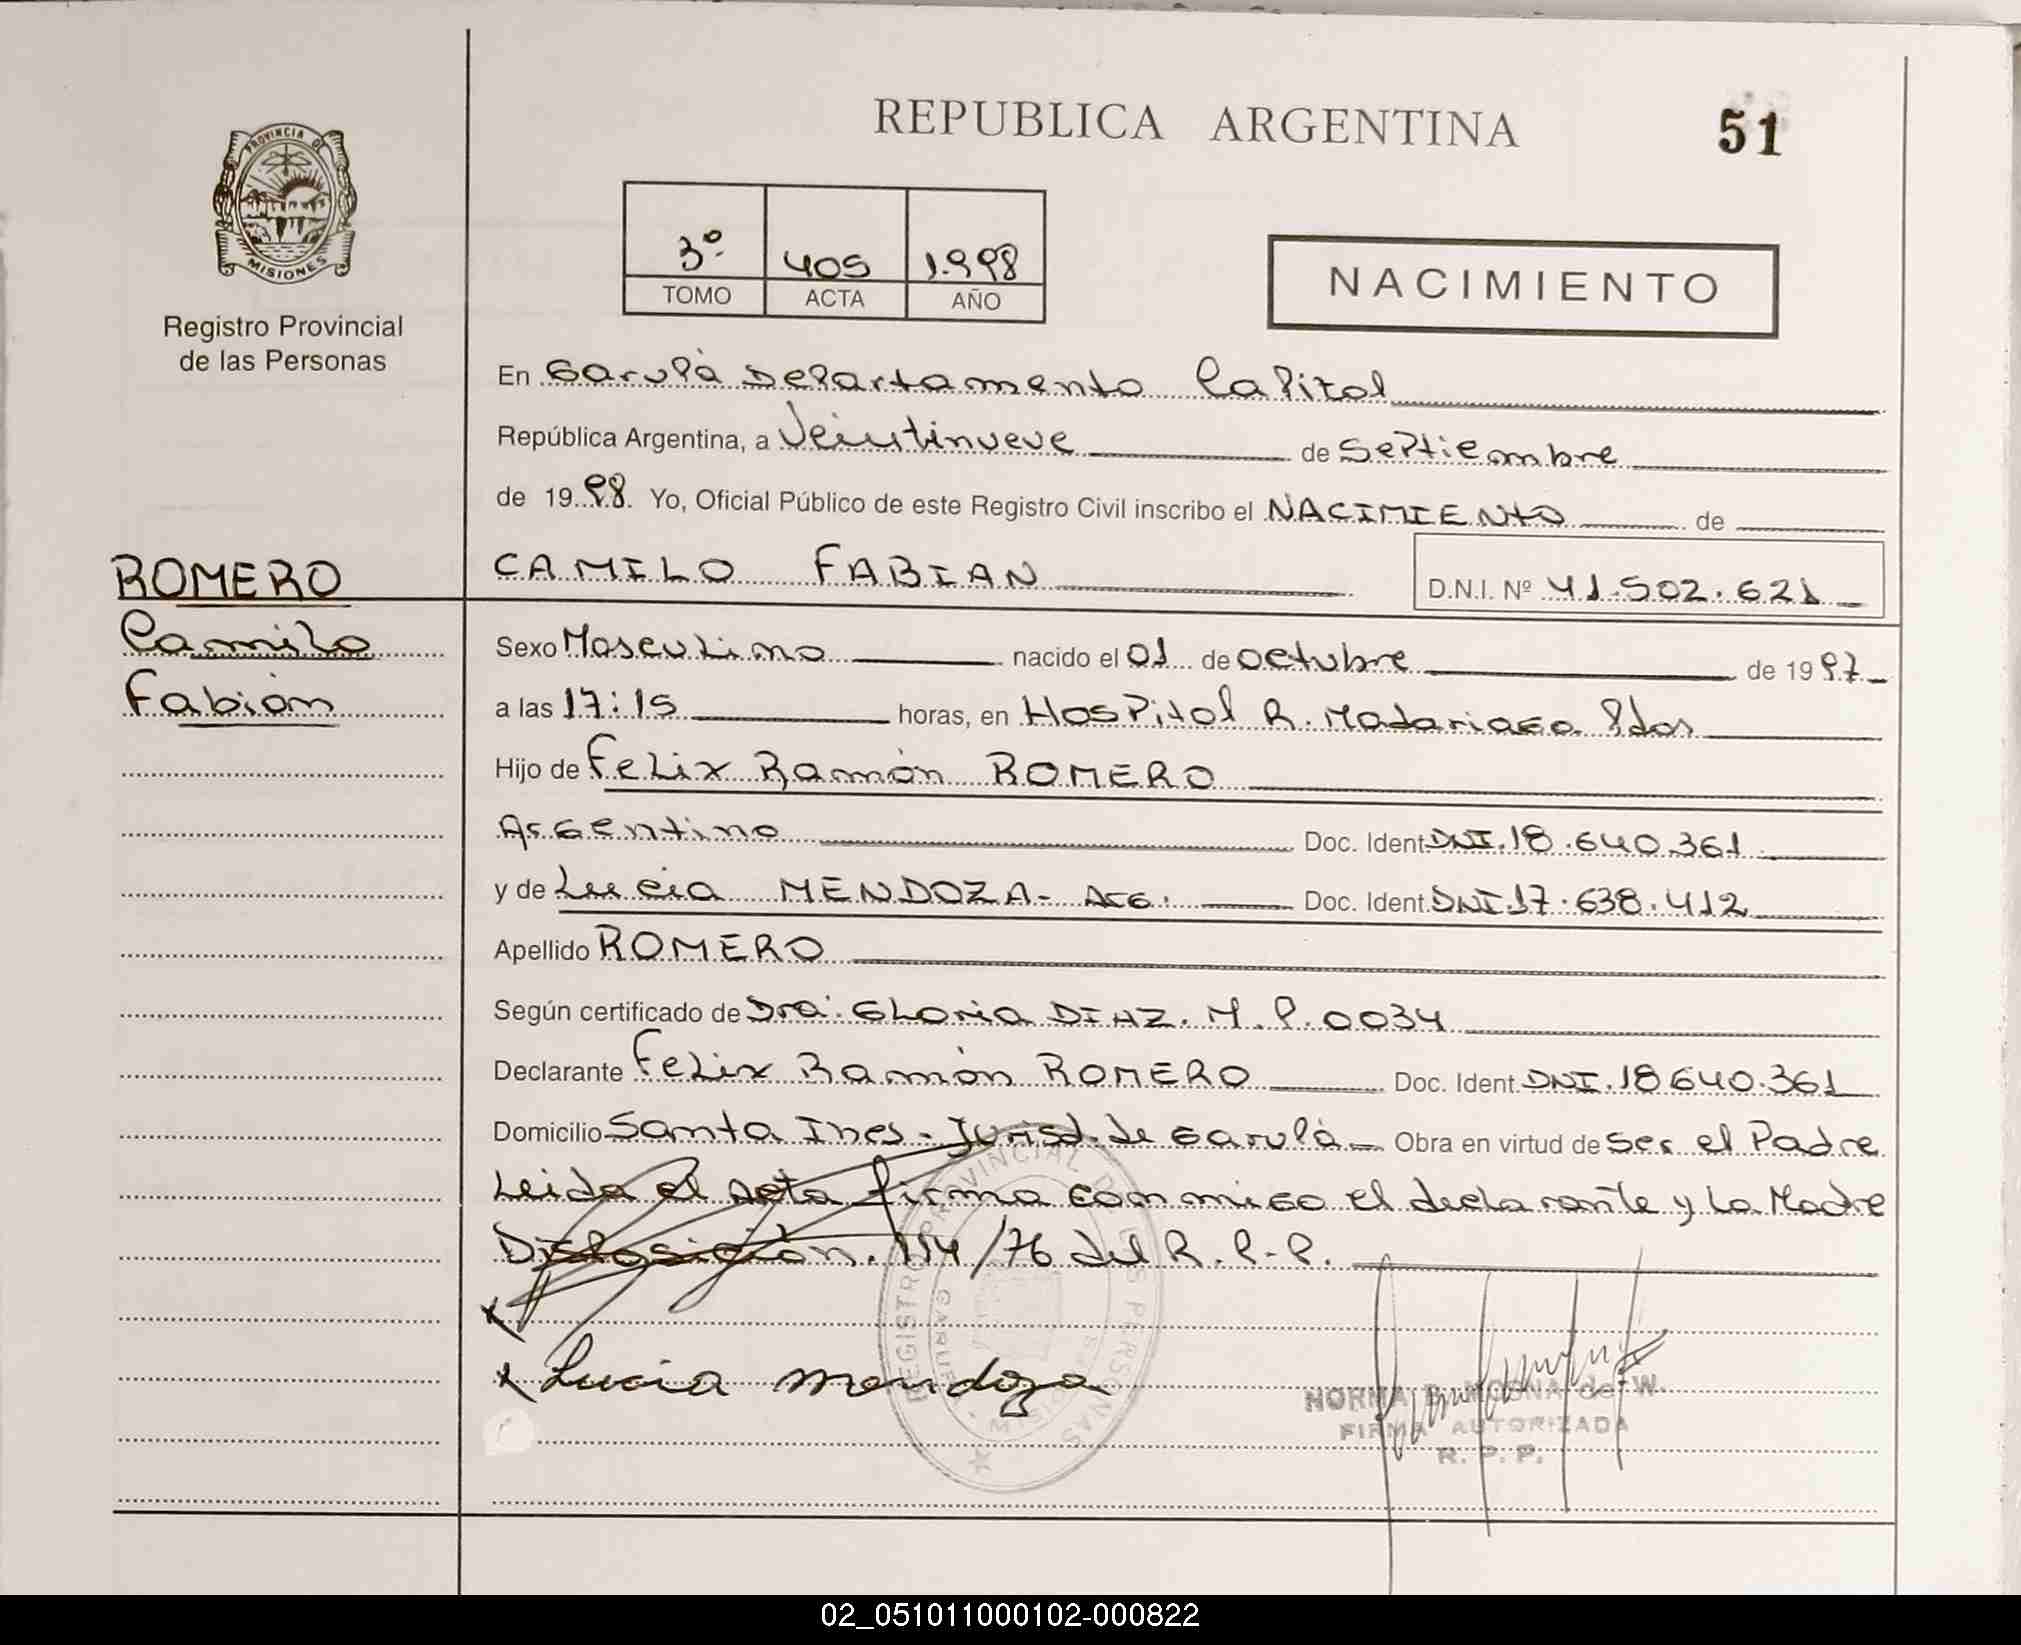 REPUBLICA ARGENTINA
51
PROVINCIA DE
MISIONES
Registro Provincial
de las Personas
3º 405 1.998
TOMO ACTA AÑO
NACIMIENTO
En Garupá Departamento Capital
República Argentina, a Veintinueve de Septiembre
de 19 98. Yo, Oficial Público de este Registro Civil inscribo el NACIMIENTO de
CAMILO FABIAN
D.N.I. Nº 41.502.621
ROMERO
Camilo
Fabián
Sexo Masculino nacido el 01 de octubre de 19 97
a las 17:15 horas, en Hospital R. Madariaga Pdas
Hijo de Felix Ramón ROMERO
Argentino Doc. Ident. DNI.18.640.361
y de Lucia MENDOZA- Arg. Doc. Ident. DNI.17.638.412
Apellido ROMERO
Según certificado de Dra. GLORIA DIAZ. M.P. 0034
Declarante Felix Ramón ROMERO Doc. Ident. DNI.18640.361
Domicilio Santa Ines - Jurisd. de Garupá Obra en virtud de Ser el Padre
Leida el acta firma conmigo el declarante y La Madre
Disposición. 114/76 del R.P.P.
x
x Lucia Mendoza
REGISTRO PROVINCIAL DE LAS PERSONAS
NORMA B. MOSNA de W.
FIRMA AUTORIZADA
R. P. P.
02_051011000102-000822